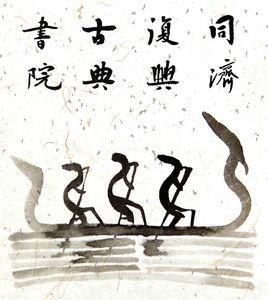 同濟
復興
古典
書院